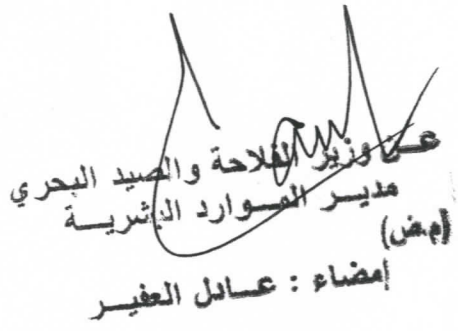 عن وزير الفلاحة والصيد البحري
مدير الموارد البشرية
(م.ض)
إمضاء : عادل العفير